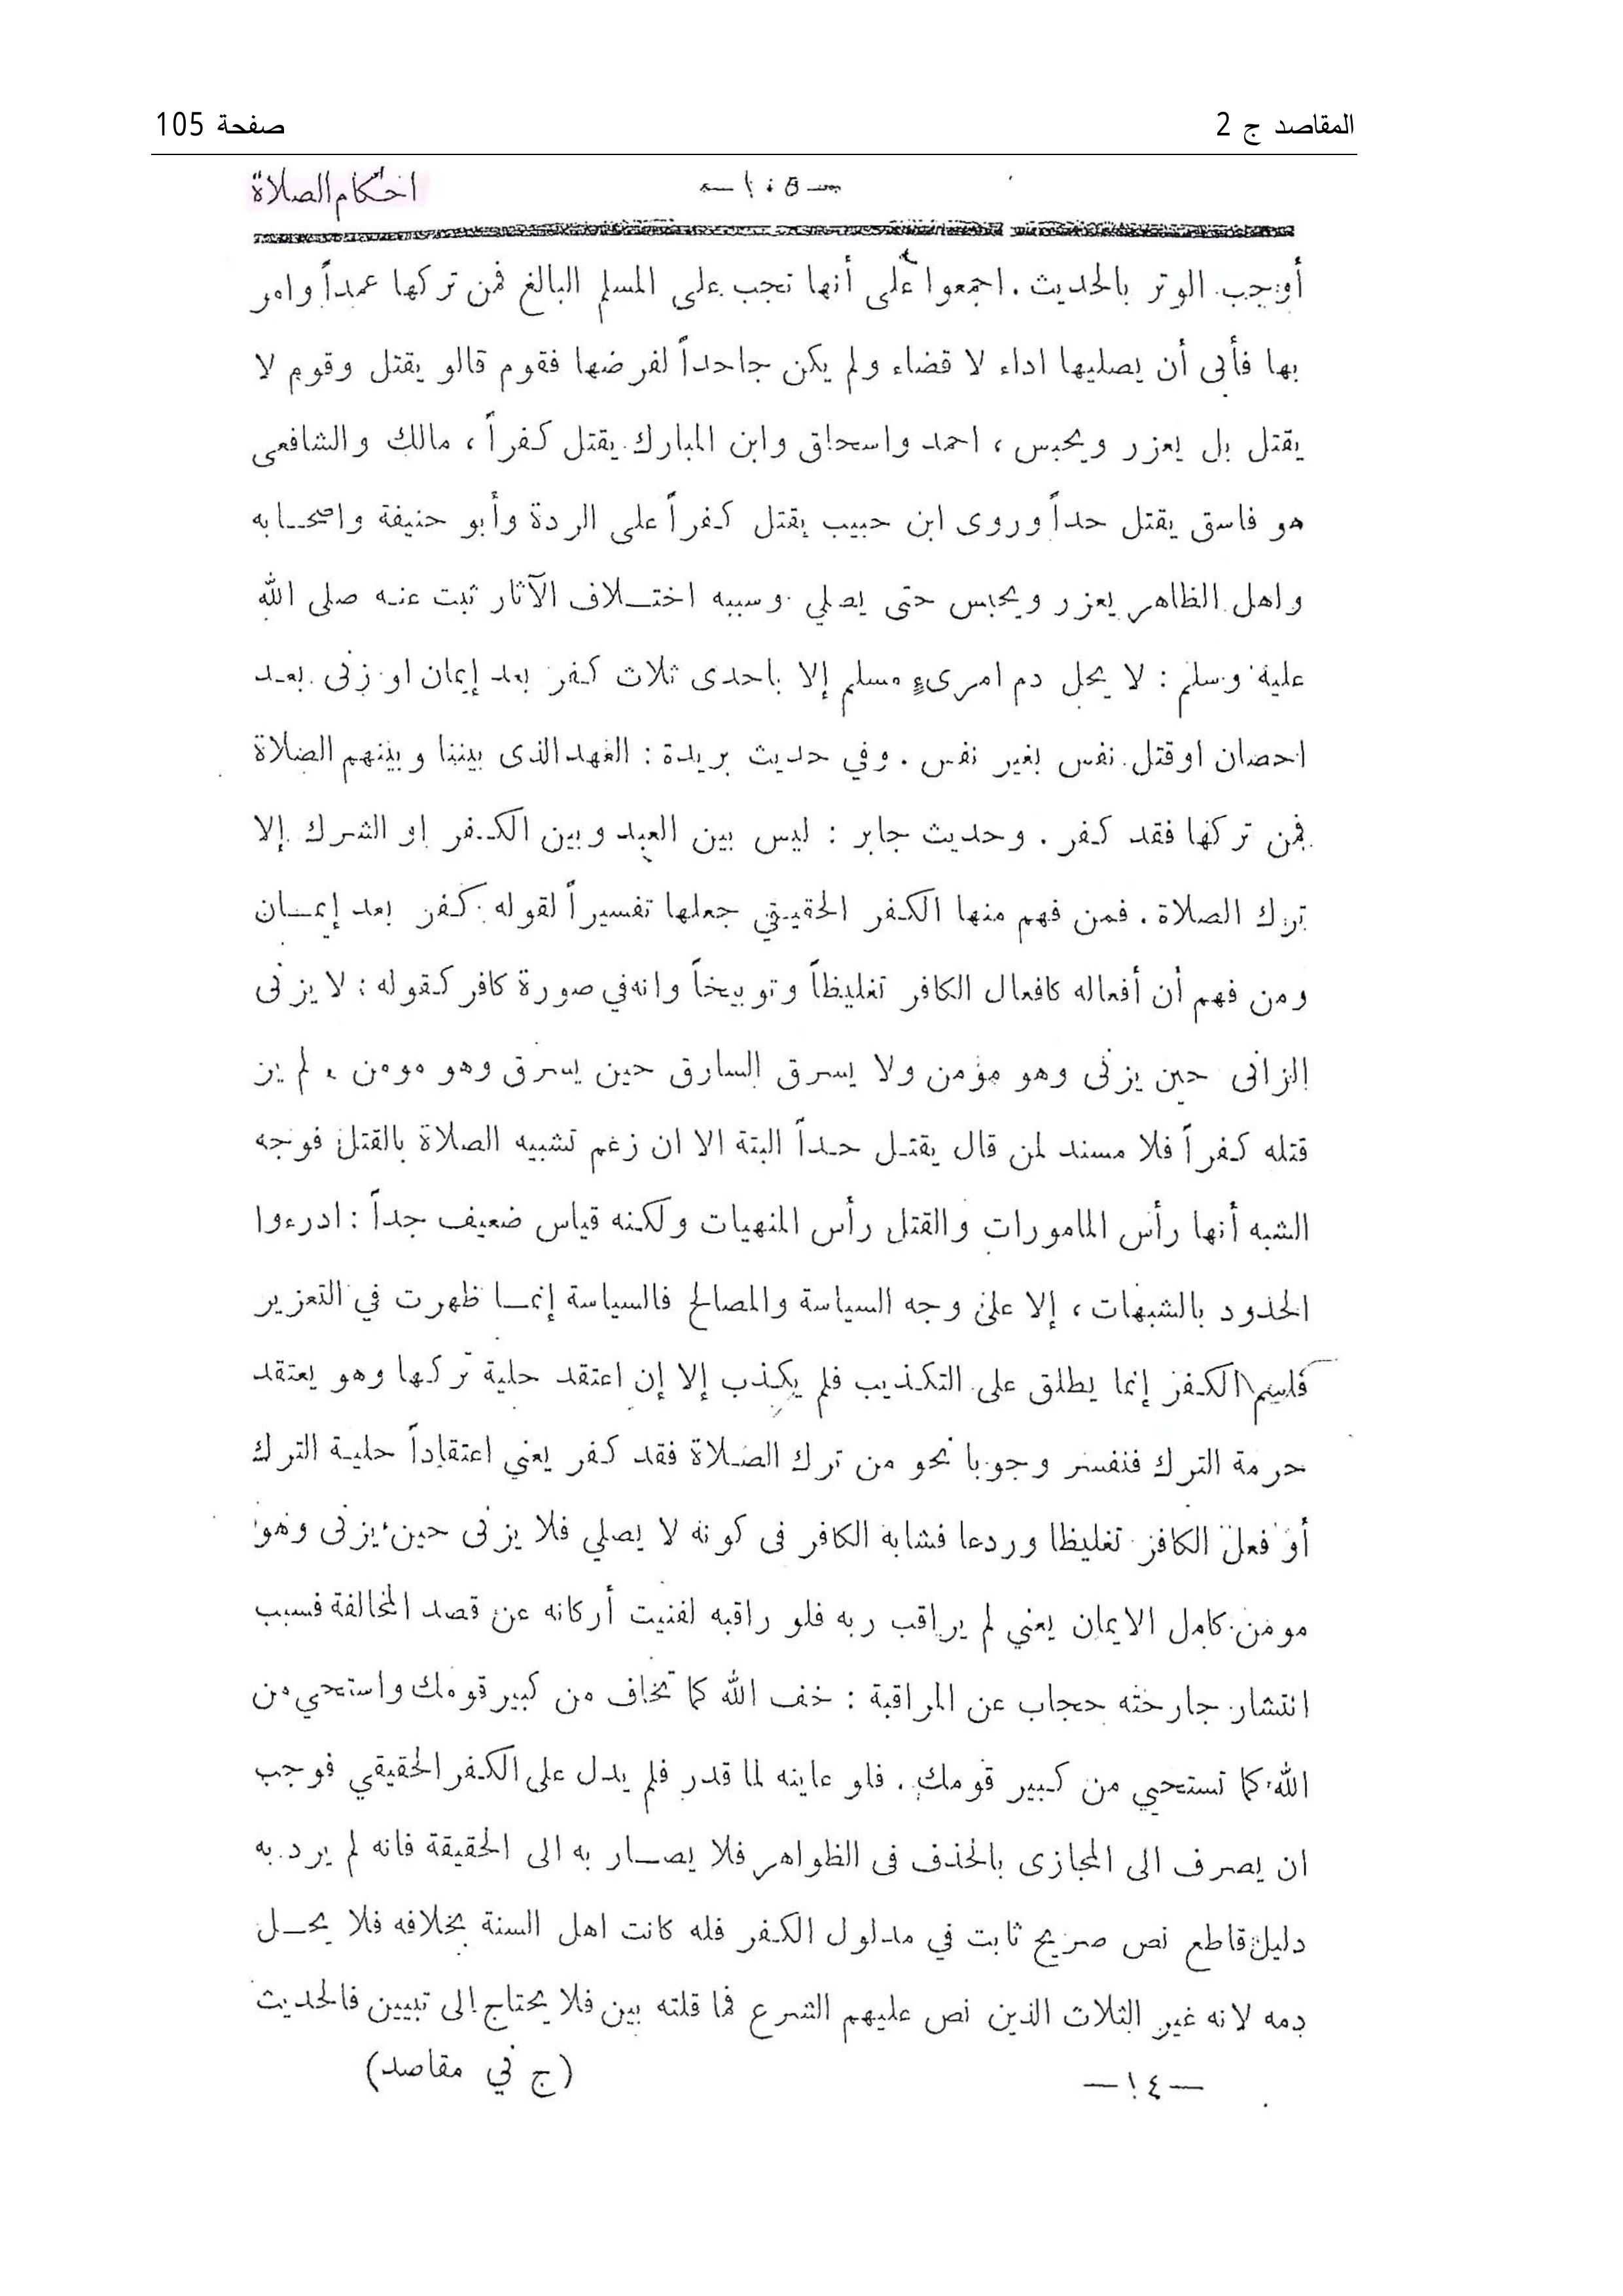 المقاصد ج 2
صفحة 105
احكام الصلاة
— ١٠٥ —
أوجب الوتر بالحديث . اجمعوا على أنها تجب على المسلم البالغ فمن تركها عمداً وامر
بها فأبى أن يصليها اداء لا قضاء ولم يكن جاحداً لفرضها فقوم قالو يقتل وقوم لا
يقتل بل يعزر ويحبس ، احمد واسحاق وابن المبارك يقتل كفراً ، مالك والشافعى
هو فاسق يقتل حداً وروى ابن حبيب يقتل كفراً على الردة وأبو حنيفة واصحابه
واهل الظاهر يعزر ويحبس حتى يصلي وسببه اختلاف الآثار ثبت عنه صلى الله
عليه وسلم : لا يحل دم امرىء مسلم إلا باحدى ثلاث كفر بعد إيمان او زنى بعد
احصان او قتل نفس بغير نفس . وفي حديث بريدة : العهد الذى بيننا وبينهم الصلاة
فمن تركها فقد كفر . وحديث جابر : ليس بين العبد وبين الكفر او الشرك إلا
ترك الصلاة . فمن فهم منها الكفر الحقيقي جعلها تفسيراً لقوله كفر بعد إيمان
ومن فهم أن أفعاله كافعال الكافر تغليظاً وتوبيخاً وانه في صورة كافر كقوله : لا يزنى
الزانى حين يزنى وهو مؤمن ولا يسرق السارق حين يسرق وهو مومن . لم ير
قتله كفراً فلا مسند لمن قال يقتل حداً البتة الا ان زعم تشبيه الصلاة بالقتل فوجه
الشبه أنها رأس المامورات والقتل رأس المنهيات ولكنه قياس ضعيف جداً : ادرءوا
الحدود بالشبهات ، إلا على وجه السياسة والمصالح فالسياسة إنما ظهرت في التعزير
فاسم الكفر إنما يطلق على التكذيب فلم يكذب إلا إن اعتقد حلية تركها وهو يعتقد
حرمة الترك فنفسر وجوبا نحو من ترك الصلاة فقد كفر يعني اعتقاداً حلية الترك
أو فعل الكافر تغليظا وردعا فشابه الكافر فى كونه لا يصلي فلا يزنى حين يزنى وهو
مومن كامل الايمان يعني لم يراقب ربه فلو راقبه لفنيت أركانه عن قصد المخالفة فسبب
انتشار جارحته حجاب عن المراقبة : خف الله كما تخاف من كبير قومك واستحي من
الله كما تستحيي من كبير قومك . فلو عاينه لما قدر فلم يدل على الكفر الحقيقي فوجب
ان يصرف الى المجازى بالحذف فى الظواهر فلا يصار به الى الحقيقة فانه لم يرد به
دليل قاطع نص صريح ثابت في مدلول الكفر فله كانت اهل السنة بخلافه فلا يحل
دمه لانه غير الثلاث الذين نص عليهم الشرع فما قلته بين فلا يحتاج الى تبيين فالحديث
— ١٤ —
(ج ني مقاصد)